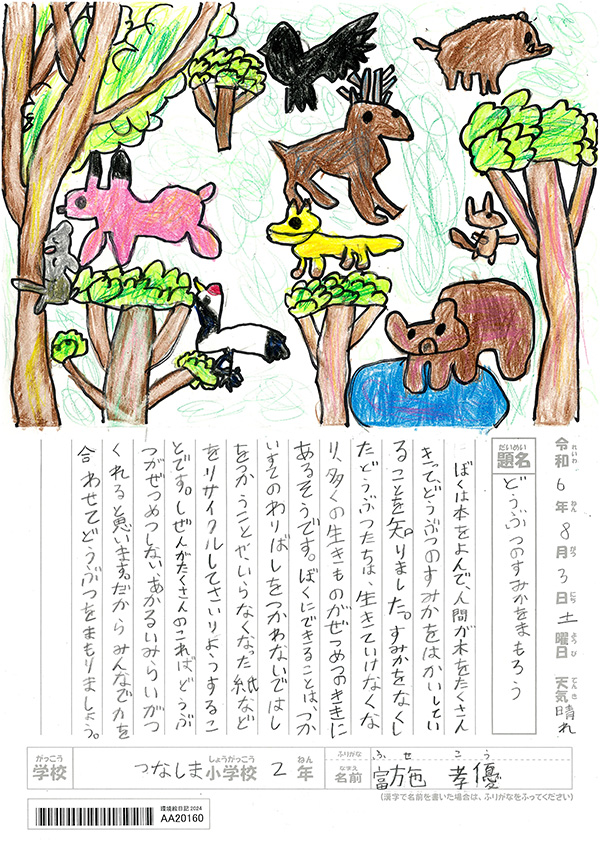 令和6年8月3日土曜日 天気晴れ
れいわ ねん がつ にち ようび てんき
だいめい
題名 どうぶつのすみかをまもろう
ぼくは本をよんで、人間が木をたくさん
きって、どうぶつのすみかをはかいしてい
ることを知りました。すみかをなくし
たどうぶつたちは、生きていけなくな
り、多くの生きものがぜつめつのききに
あるそうです。ぼくにできることは、つか
いすてのわりばしをつかわないではし
をつかうことや、いらなくなった紙など
をリサイクルしてさいりようするこ
とです。しぜんがたくさんのこれば、どうぶ
つがぜつめつしない、あかるいみらいがつ
くれると思います。だからみんなで力を
合わせてどうぶつをまもりましょう。
がっこう しょうがっこう ねん
学校 つなしま小学校 2年
ふりがな ふせ こう
なまえ
名前 富施 孝優
(漢字で名前を書いた場合は、ふりがなをふってください)
環境絵日記2024
AA20160